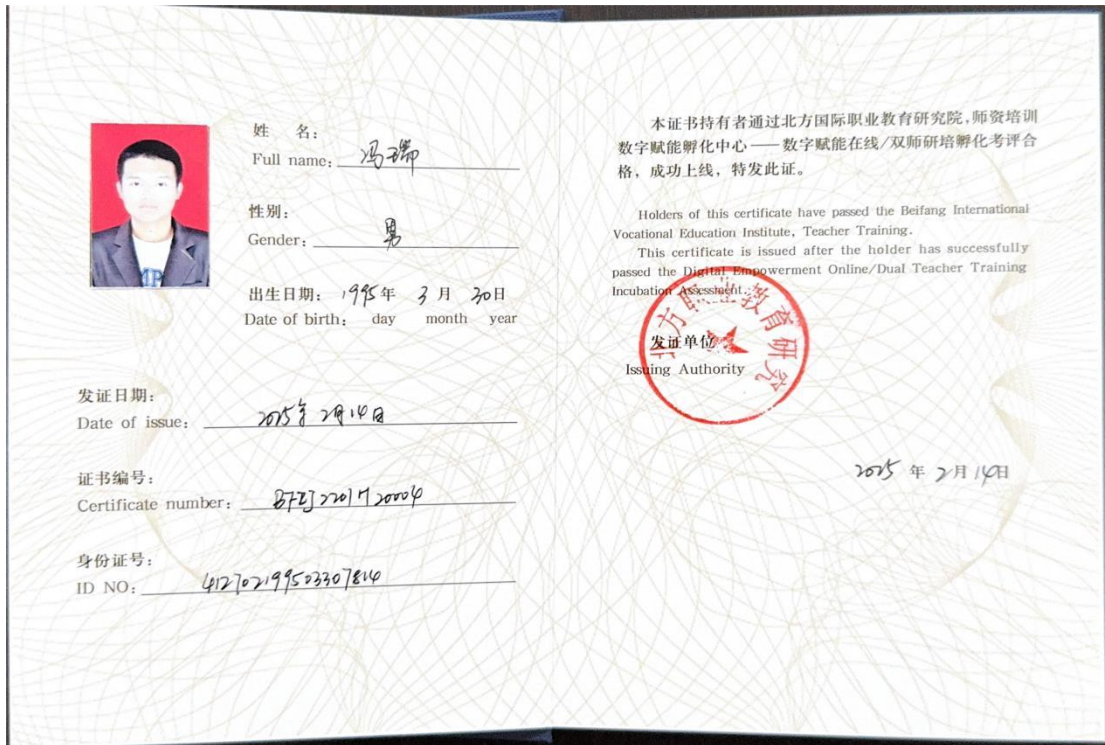 姓 名：
Full name： 冯瑞
性别：
Gender： 男
出生日期： 1995年 3月 30日
Date of birth： day month year
发证日期：
Date of issue： 2025年2月14日
证书编号：
Certificate number：
身份证号：
ID NO： 412702199503307814
本证书持有者通过北方国际职业教育研究院，师资培训
数字赋能孵化中心——数字赋能在线/双师研培孵化考评合
格，成功上线，特发此证。
Holders of this certificate have passed the Beifang International
Vocational Education Institute，Teacher Training.
This certificate is issued after the holder has successfully
passed the Digital Empowerment Online/Dual Teacher Training
Incubation Assessment.
北方职业教育研究
发证单位
Issuing Authority
2025年2月14日